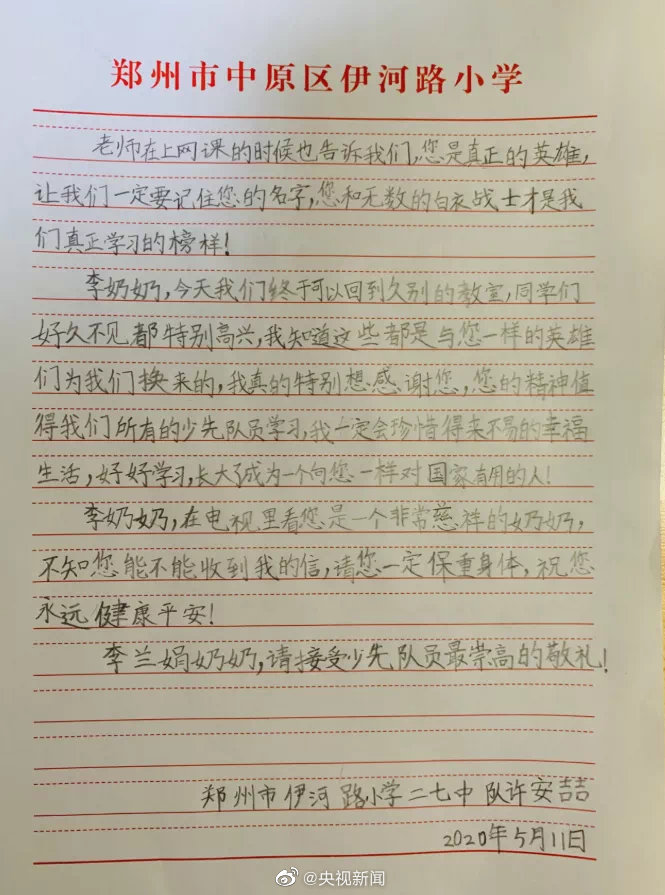 郑州市中原区伊河路小学
老师在上网课的时候也告诉我们,您是真正的英雄,
让我们一定要记住您的名字,您和无数的白衣战士才是我
们真正学习的榜样!
李奶奶,今天我们终于可以回到久别的教室,同学们
好久不见都特别高兴,我知道这些都是与您一样的英雄
们为我们换来的,我真的特别想感谢您,您的精神值
得我们所有的少先队员学习,我一定会珍惜得来不易的幸福
生活,好好学习,长大了成为一个向您一样对国家有用的人!
李奶奶,在电视里看您是一个非常慈祥的奶奶,
不知您能不能收到我的信,请您一定保重身体,祝您
永远健康平安!
李兰娟奶奶,请接受少先队员最崇高的敬礼!
郑州市伊河路小学二七中队许安喆
2020年5月11日
@央视新闻